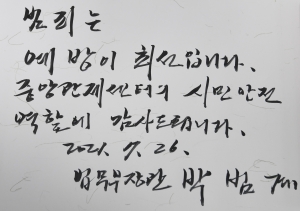 범죄는
예방이 최선입니다.
중앙관제센터의 시민안전
역할에 감사드립니다.
2021. 7. 26.
법무부장관 박 범 계